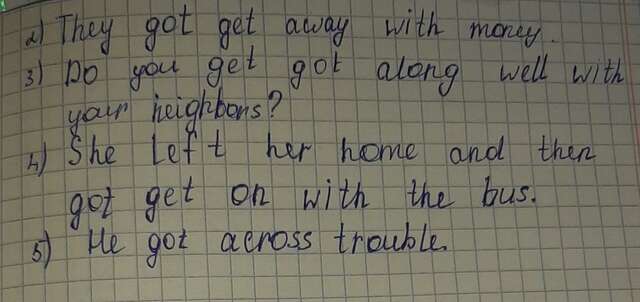 2) They got get away with money.
3) Do you get got along well with
your neighbors?
4) She left her home and then
got get on with the bus.
5) He got across trouble.